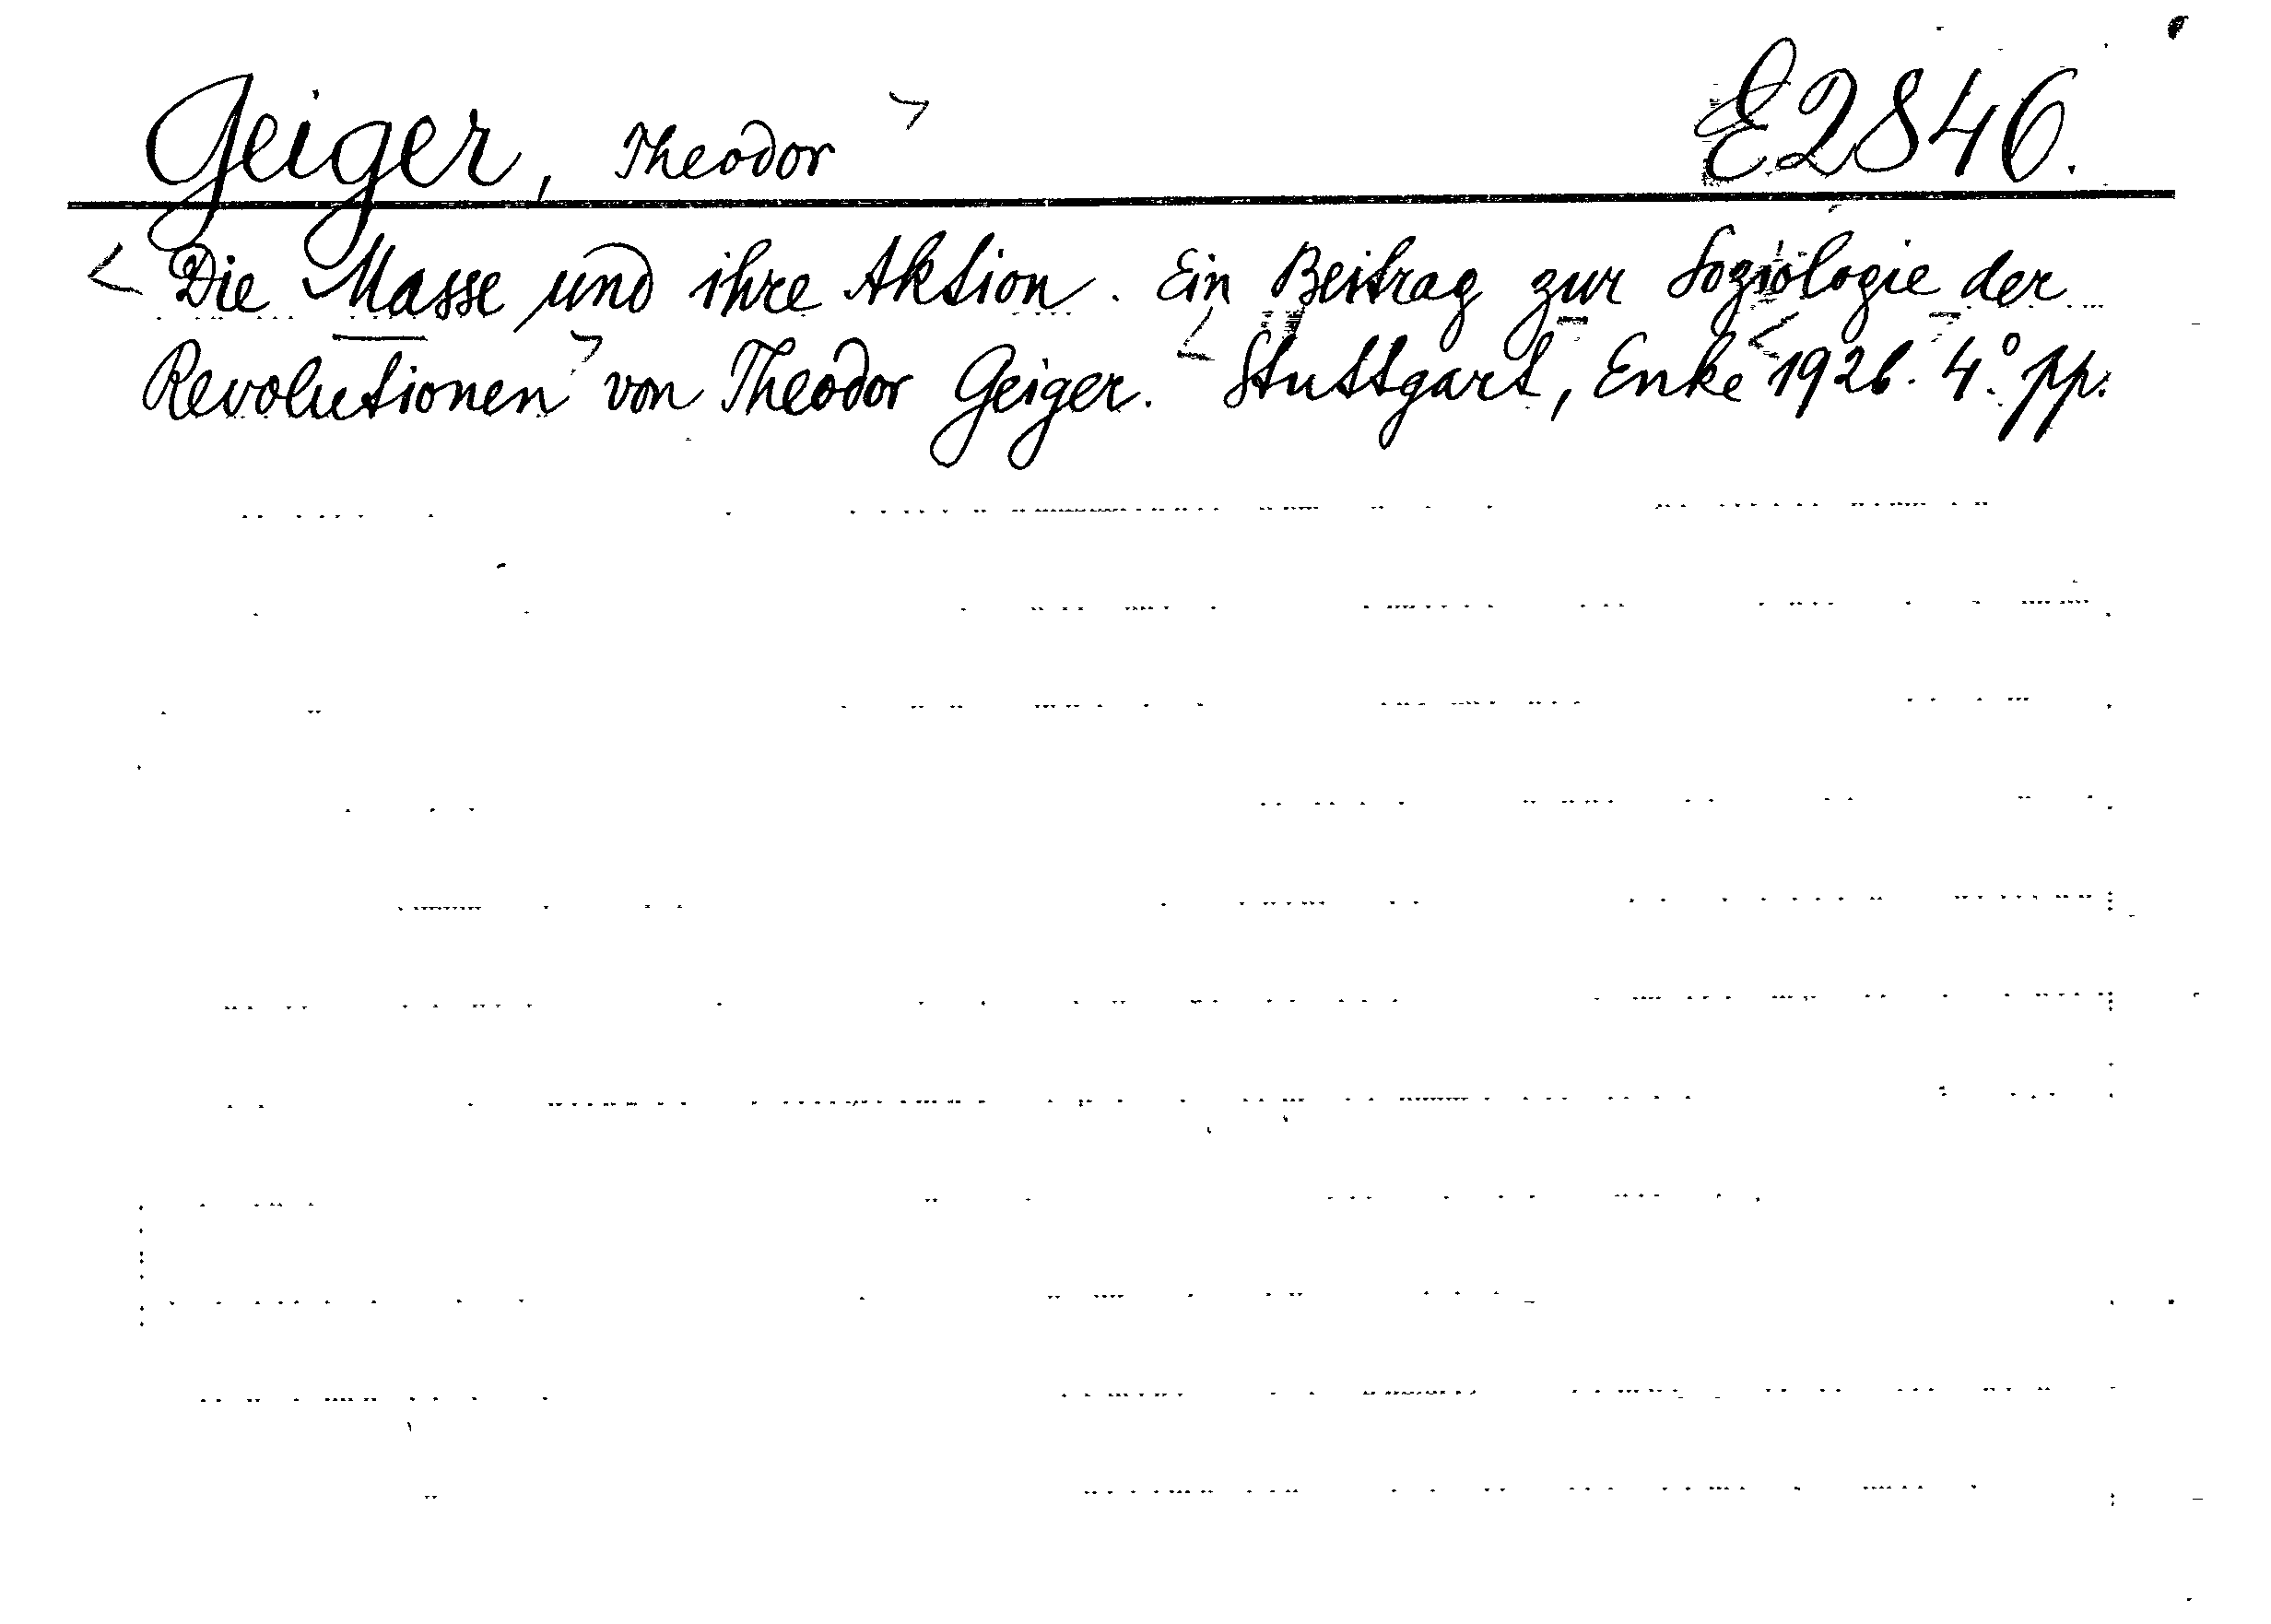 Geiger, Theodor > E2846.
< Die Masse und ihre Aktion. Ein Beitrag zur Soziologie der
Revolutionen > von Theodor Geiger. < Stuttgart, Enke < 1926. 4.° pp.